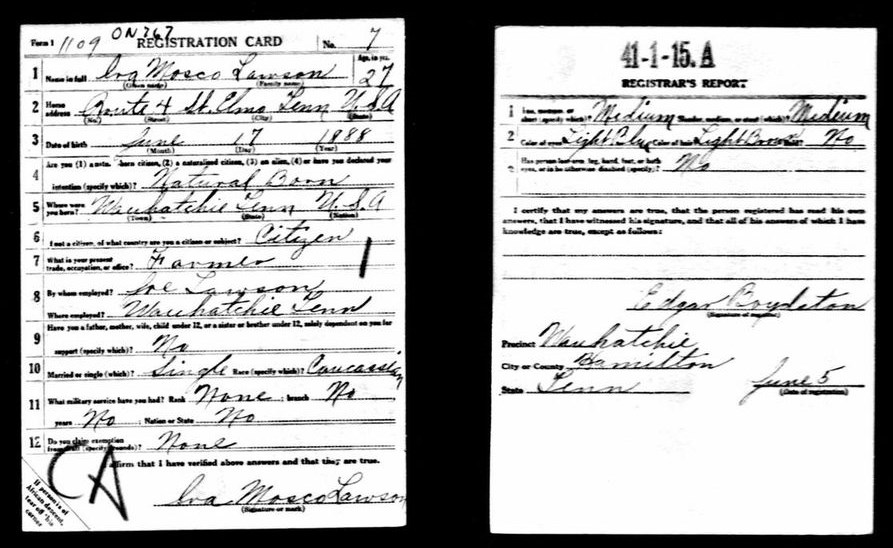 Form 1 1109 ON 767 REGISTRATION CARD No. 7
1 Name in full Ira Mosco Lawson Age, in yrs. 27
(Given name) (Family name)
2 Home address Route 4 St. Elmo Tenn U.S.A
(No.) (Street) (City) (State)
3 Date of birth June 17 1888
(Month) (Day) (Year)
4 Are you (1) a natural-born citizen, (2) a naturalized citizen, (3) an alien, (4) or have you declared your
intention (specify which)? Natural Born
5 Where were you born? Wauhatchie Tenn U.S.A
(Town) (State) (Nation)
6 If not a citizen, of what country are you a citizen or subject? Citizen
7 What is your present trade, occupation, or office? Farmer 1
8 By whom employed? Joe Lawson
Where employed? Wauhatchie Tenn
9 Have you a father, mother, wife, child under 12, or a sister or brother under 12, solely dependent on you for
support (specify which)? No
10 Married or single (which)? Single Race (specify which)? Caucassian
11 What military service have you had? Rank None ; branch No
years No ; Nation or State No
12 Do you claim exemption from draft (specify grounds)? None
CA
affirm that I have verified above answers and that they are true.
Ira Mosco Lawson
(Signature or mark)
If person is of
African descent,
tear off this
corner
41-1-15. A
REGISTRAR'S REPORT
1 Tall, medium, or short (specify which)? Medium Slender, medium, or stout (which)? Medium
2 Color of eyes Light Blu Color of hair Light Brown Bald? No
3 Has person lost arm, leg, hand, foot, or both eyes, or is he otherwise disabled (specify)? No
I certify that my answers are true, that the person registered has read his own
answers, that I have witnessed his signature, and that all of his answers of which I have
knowledge are true, except as follows:
Edgar Boydston
(Signature of registrar)
Precinct Wauhatchie
City or County Hamilton
State Tenn June 5
(Date of registration)